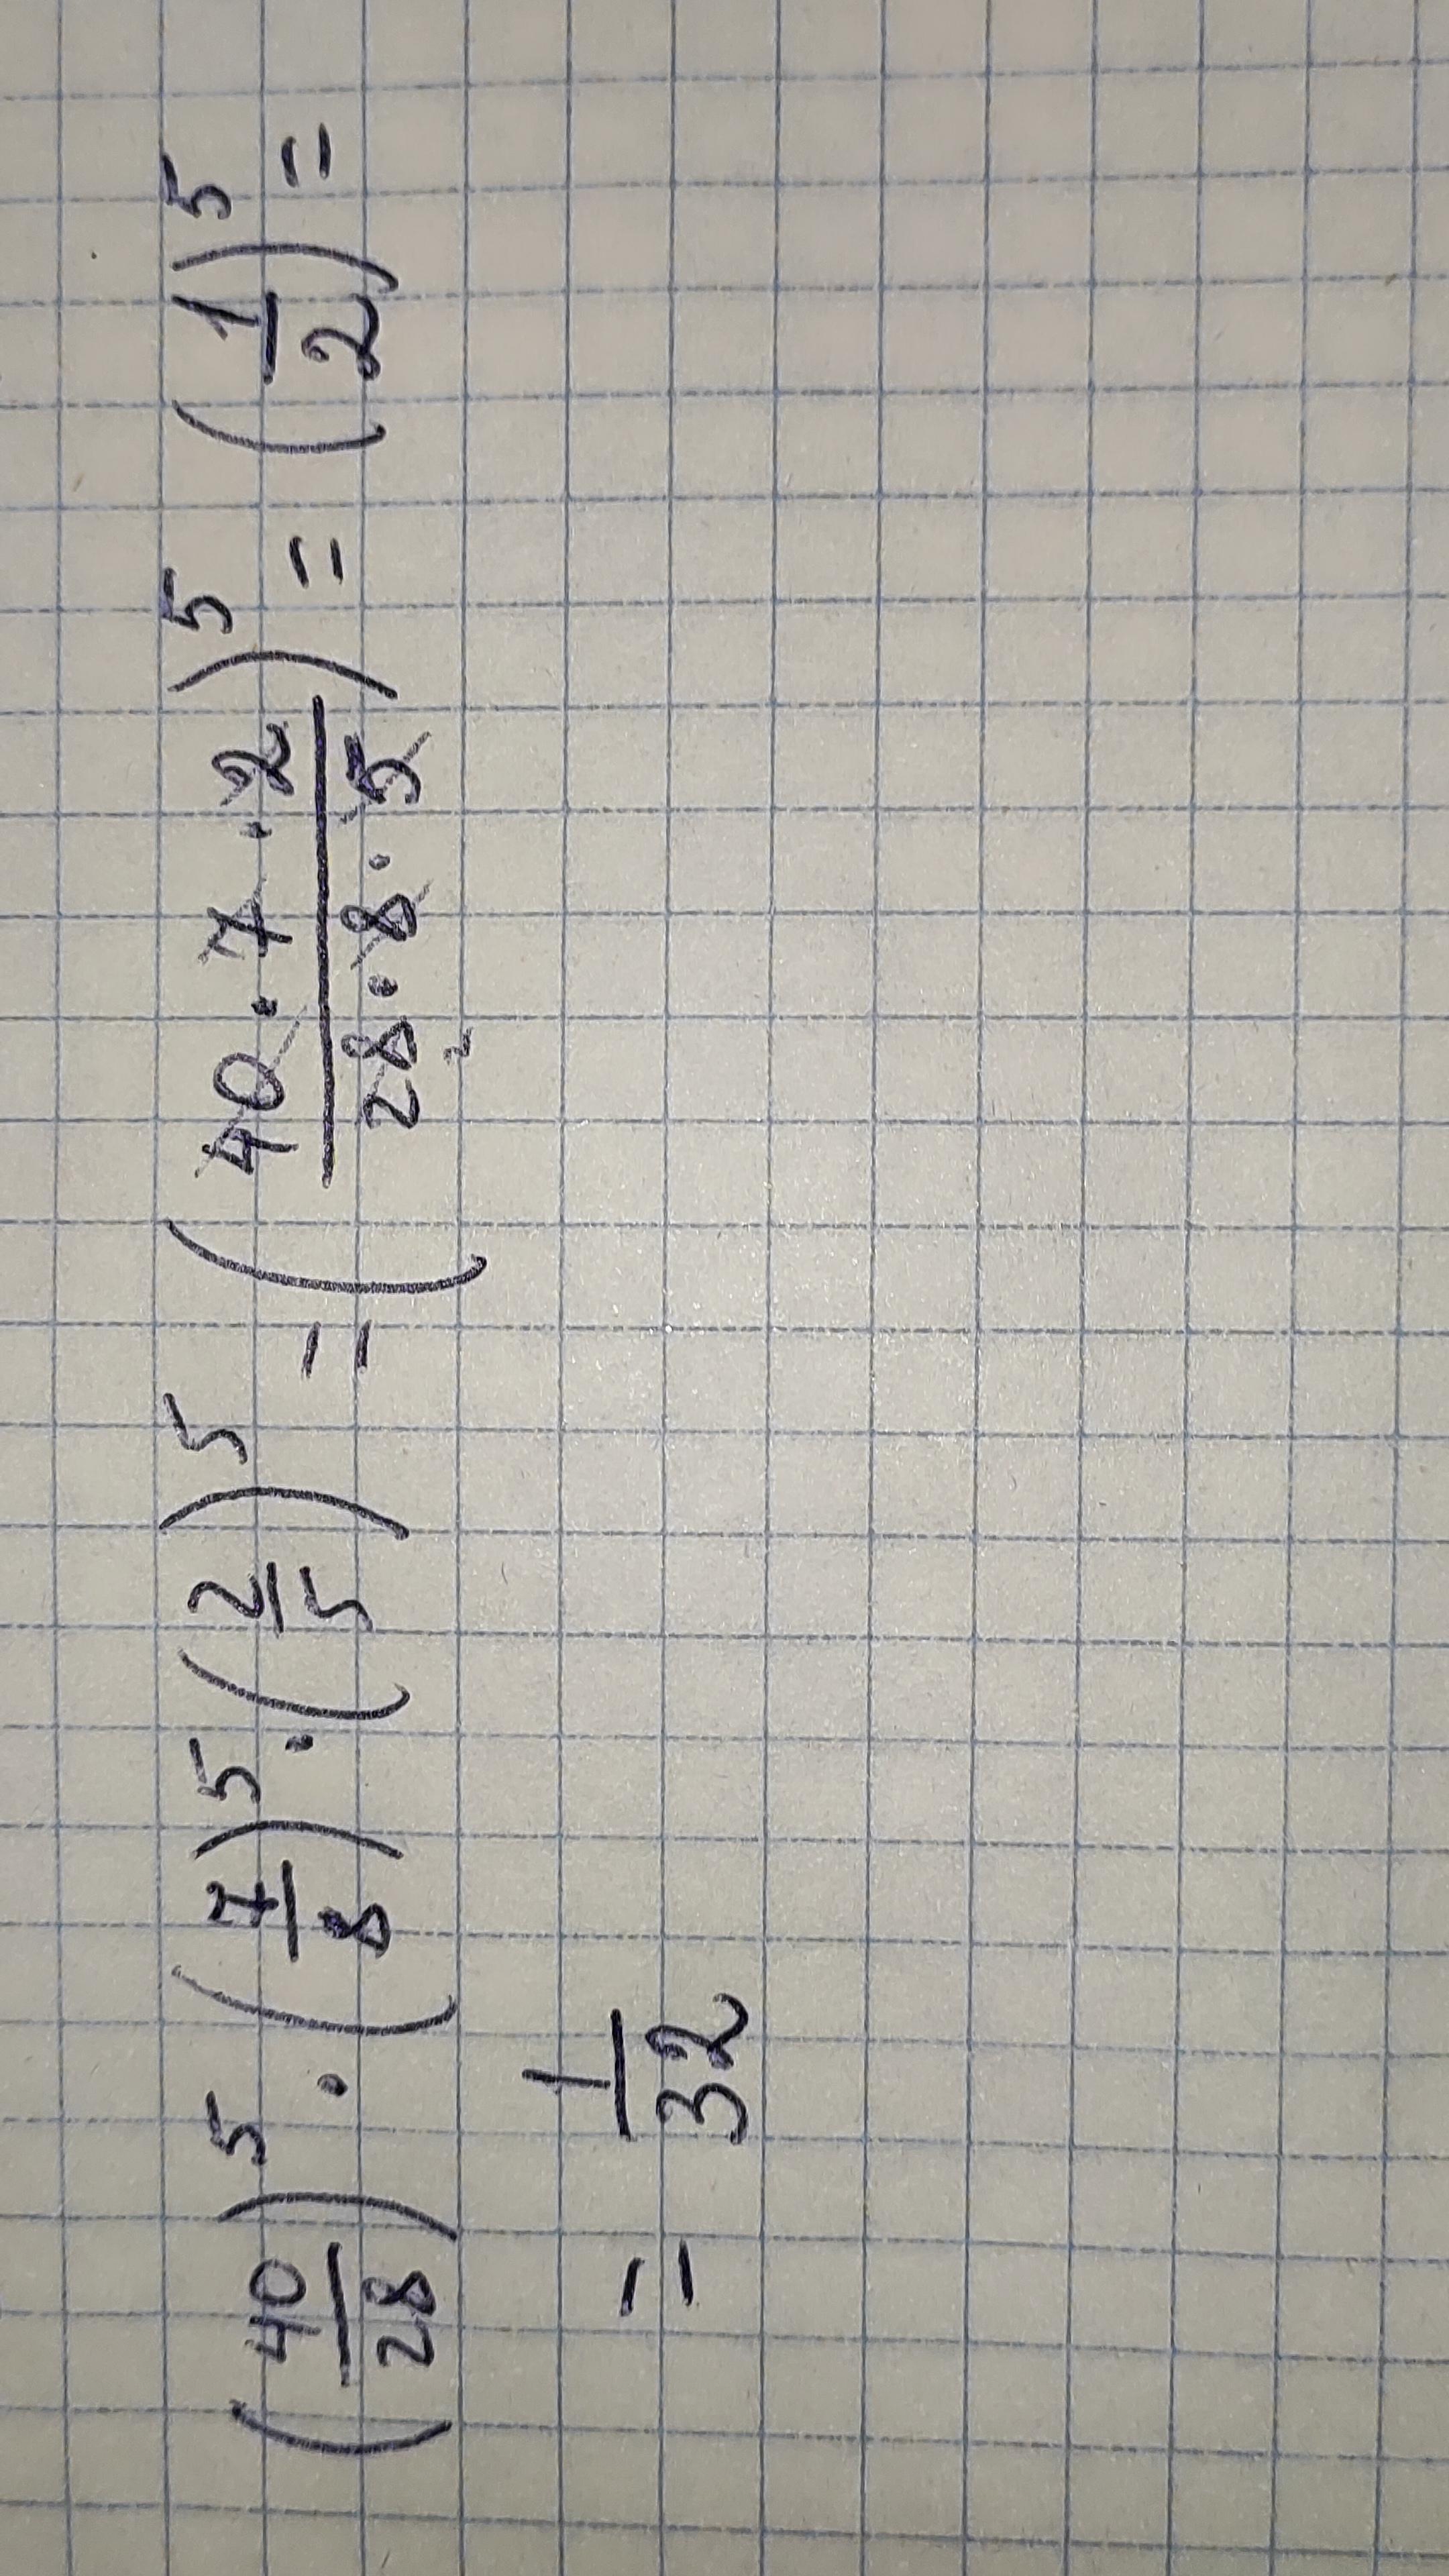 (40/28)^5 · (7/8)^5 · (2/5)^5 = (40 · 7 · 2 / 28 · 8 · 5)^5 = (1/2)^5 =
= 1/32